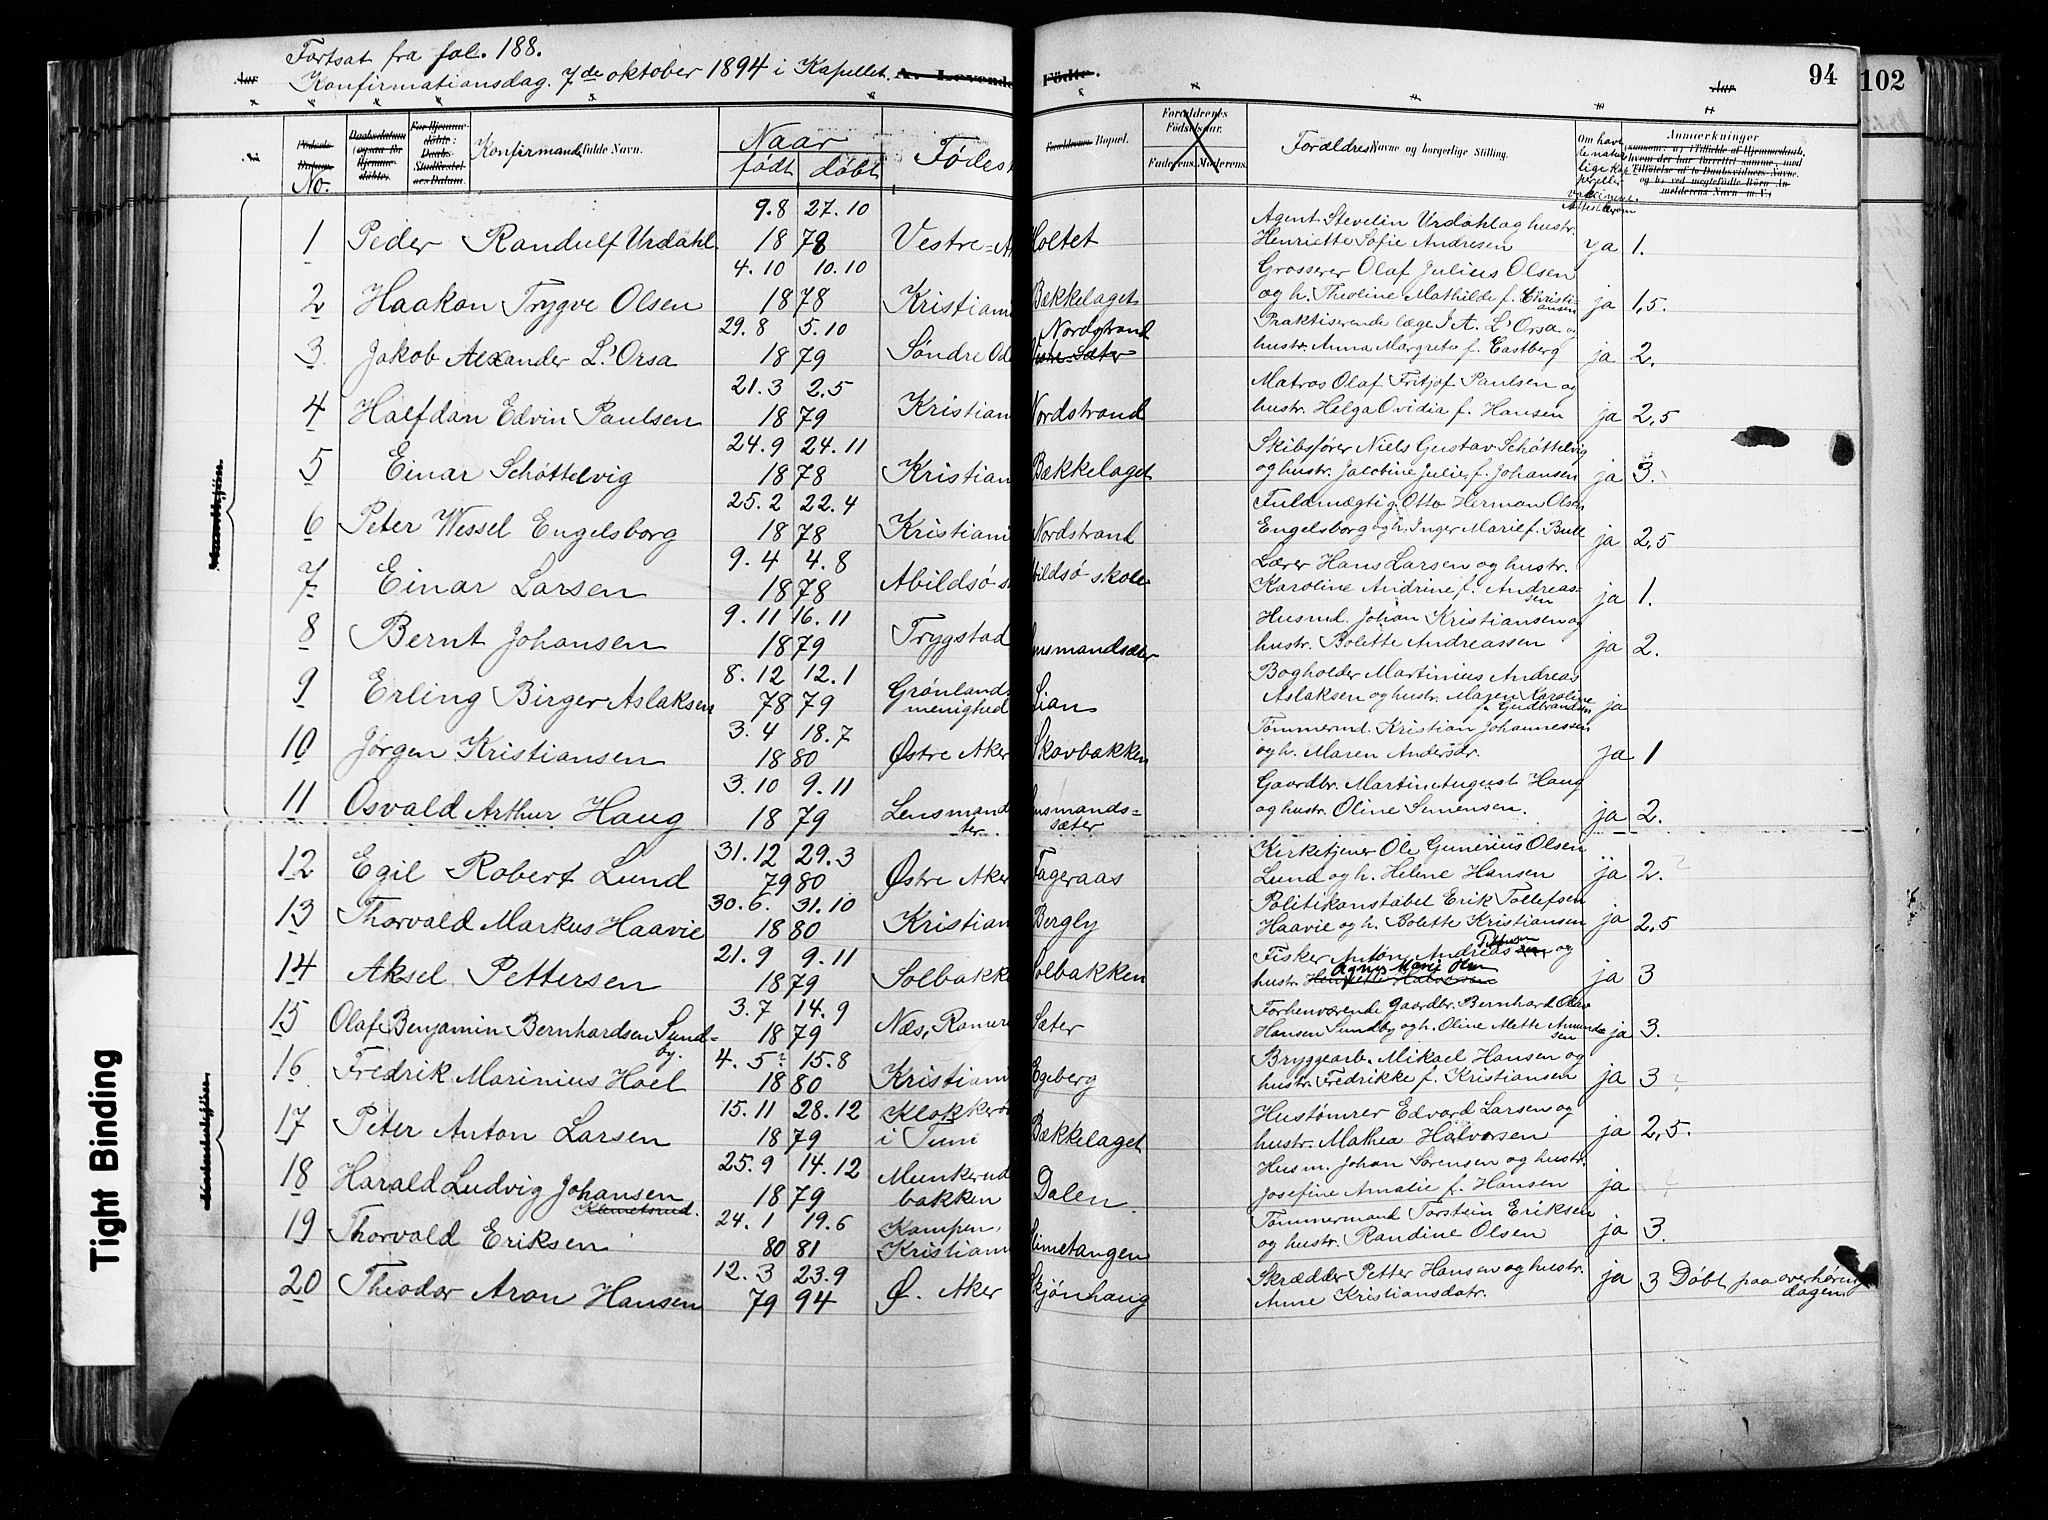 Fortsat fra fol. 188.
Konfirmationsdag. 7de oktober 1894 i Kapellet. A. Levende Fødte.
Aar
94
102
No.
Konfirmand. fulde Navn.
Naar
født døbt
Fødest
Bopæl.
Forældrenes Fødselsaar.
Faderens. Moderens.
Forældres Navne og borgerlige Stilling.
Anmerkninger
1 Peder Randulf Urdahl 9.8 27.10 1878 Vestre-A Holtet Agent Stevelin Urdahl og hustr.
Henriette Sofie Andresen ja 1.
2 Haakon Trygve Olsen 4.10 10.10 1878 Kristiani Bækkelaget Grosserer Olaf Julius Olsen
og h. Theoline Mathilde f. Christiansen ja 1,5.
3 Jakob Alexander L'Orsa 29.8 5.10 1879 Søndre Od Nordstrand Praktiserende læge J A. L'Orsa og
hustr. Anna Margrete f. Eastberg ja 2.
4 Halfdan Edvin Paulsen 21.3 2.5 1879 Kristian Nordstrand Matros Olaf Fritjof Paulsen og
hustr. Helga Ovidia f. Hansen ja 2,5
5 Einar Schøttelvig 24.9 24.11 1878 Kristian Bækkelaget Skibsfører Niels Gustav Schøttelvig
og hustr. Jacobine Julie f. Johansen ja 3.
6 Peter Wessel Engelsborg 25.2 22.4 1878 Kristiani Nordstrand Fuldmægtig Otto Herman Olsen
Engelsborg og h. Inger Marie f. Bull ja 2,5
7 Einar Larsen 9.4 4.8 1878 Abildsø s bildsø skole Lærer Hans Larsen og hustr.
Karoline Andrine f. Andreassen ja 1.
8 Bernt Johansen 9.11 16.11 1879 Trygstad ensmandsæter Husmd. Johan Kristiansen og
hustr. Bolette Andreassen ja 2.
9 Erling Birger Aslaksen 8.12 12.1 78 79 Grønlands menighed Lian Bogholder Martinius Andreas
Aslaksen og hustr. Maren Karoline f. Gudbrandsen ja
10 Jørgen Kristiansen 3.4 18.7 1880 Østre Aker Skovbakken Tømmermd. Kristian Johannessen
og h. Maren Andersdr. ja 1
11 Osvald Arthur Haug 3.10 9.11 1879 Lensmand ter. ensmands-sæter Gaardbr. Martin August Haug
og hustr. Oline Simensen. ja 2.
12 Egil Robert Lund 31.12 29.3 79 80 Østre Aker Fageraas Kirketjener Ole Gunerius Olsen
Lund og h. Helene Hansen ja 2.
13 Thorvald Markus Haavie 30.6. 31.10 1880 Kristian Bergly Politikonstabel Erik Tollefsen
Haavie og h. Bolette Kristiansen ja 2,5
14 Aksel Pettersen 21.9 9.11 1879 Solbakke Solbakken Fisker Anton Andreas Pettersen og
hustr. Agnes Marie Olsen ja 3
15 Olaf Benjamin Bernhardsen Sundby. 3.7 14.9 1879 Næs, Romeri Sæter Forhenværende Gaardbr. Bernhard Olav
Hansen Sundby og h. Oline Alette Amundsen ja 3.
16 Fredrik Marinius Hoel 4.5? 15.8 1880 Kristiani Egeberg Bryggearb. Mikael Hansen og
hustr. Fredrikke f. Kristiansen ja 3 ?
17 Peter Anton Larsen 15.11 28.12 1879 Klokker i Tuni Bækkelaget Hustømrer Edvard Larsen og
hustr. Mathea Halvorsen ja 2,5.
18 Harald Ludvig Johansen Klemetsrud. 25.9 14.12 1879 Munkerud bakken Dalen. Husm. Johan Sørensen og hustr.
Josefine Amalie f. Hansen ja ?
19 Thorvald Eriksen 24.1 19.6 80 81 Kampen, Kristiani imetangen Tømmermand Torstein Eriksen
og hustr. Randine Olsen ja 3.
20 Theodor Aron Hansen 12.3 23.9 79 94 Ø. Aker Skjønhaug Skrædder Petter Hansen og hustr.
Anne Kristiansdatr. ja 3 Døbt paa overhøring dagen.
Tight Binding